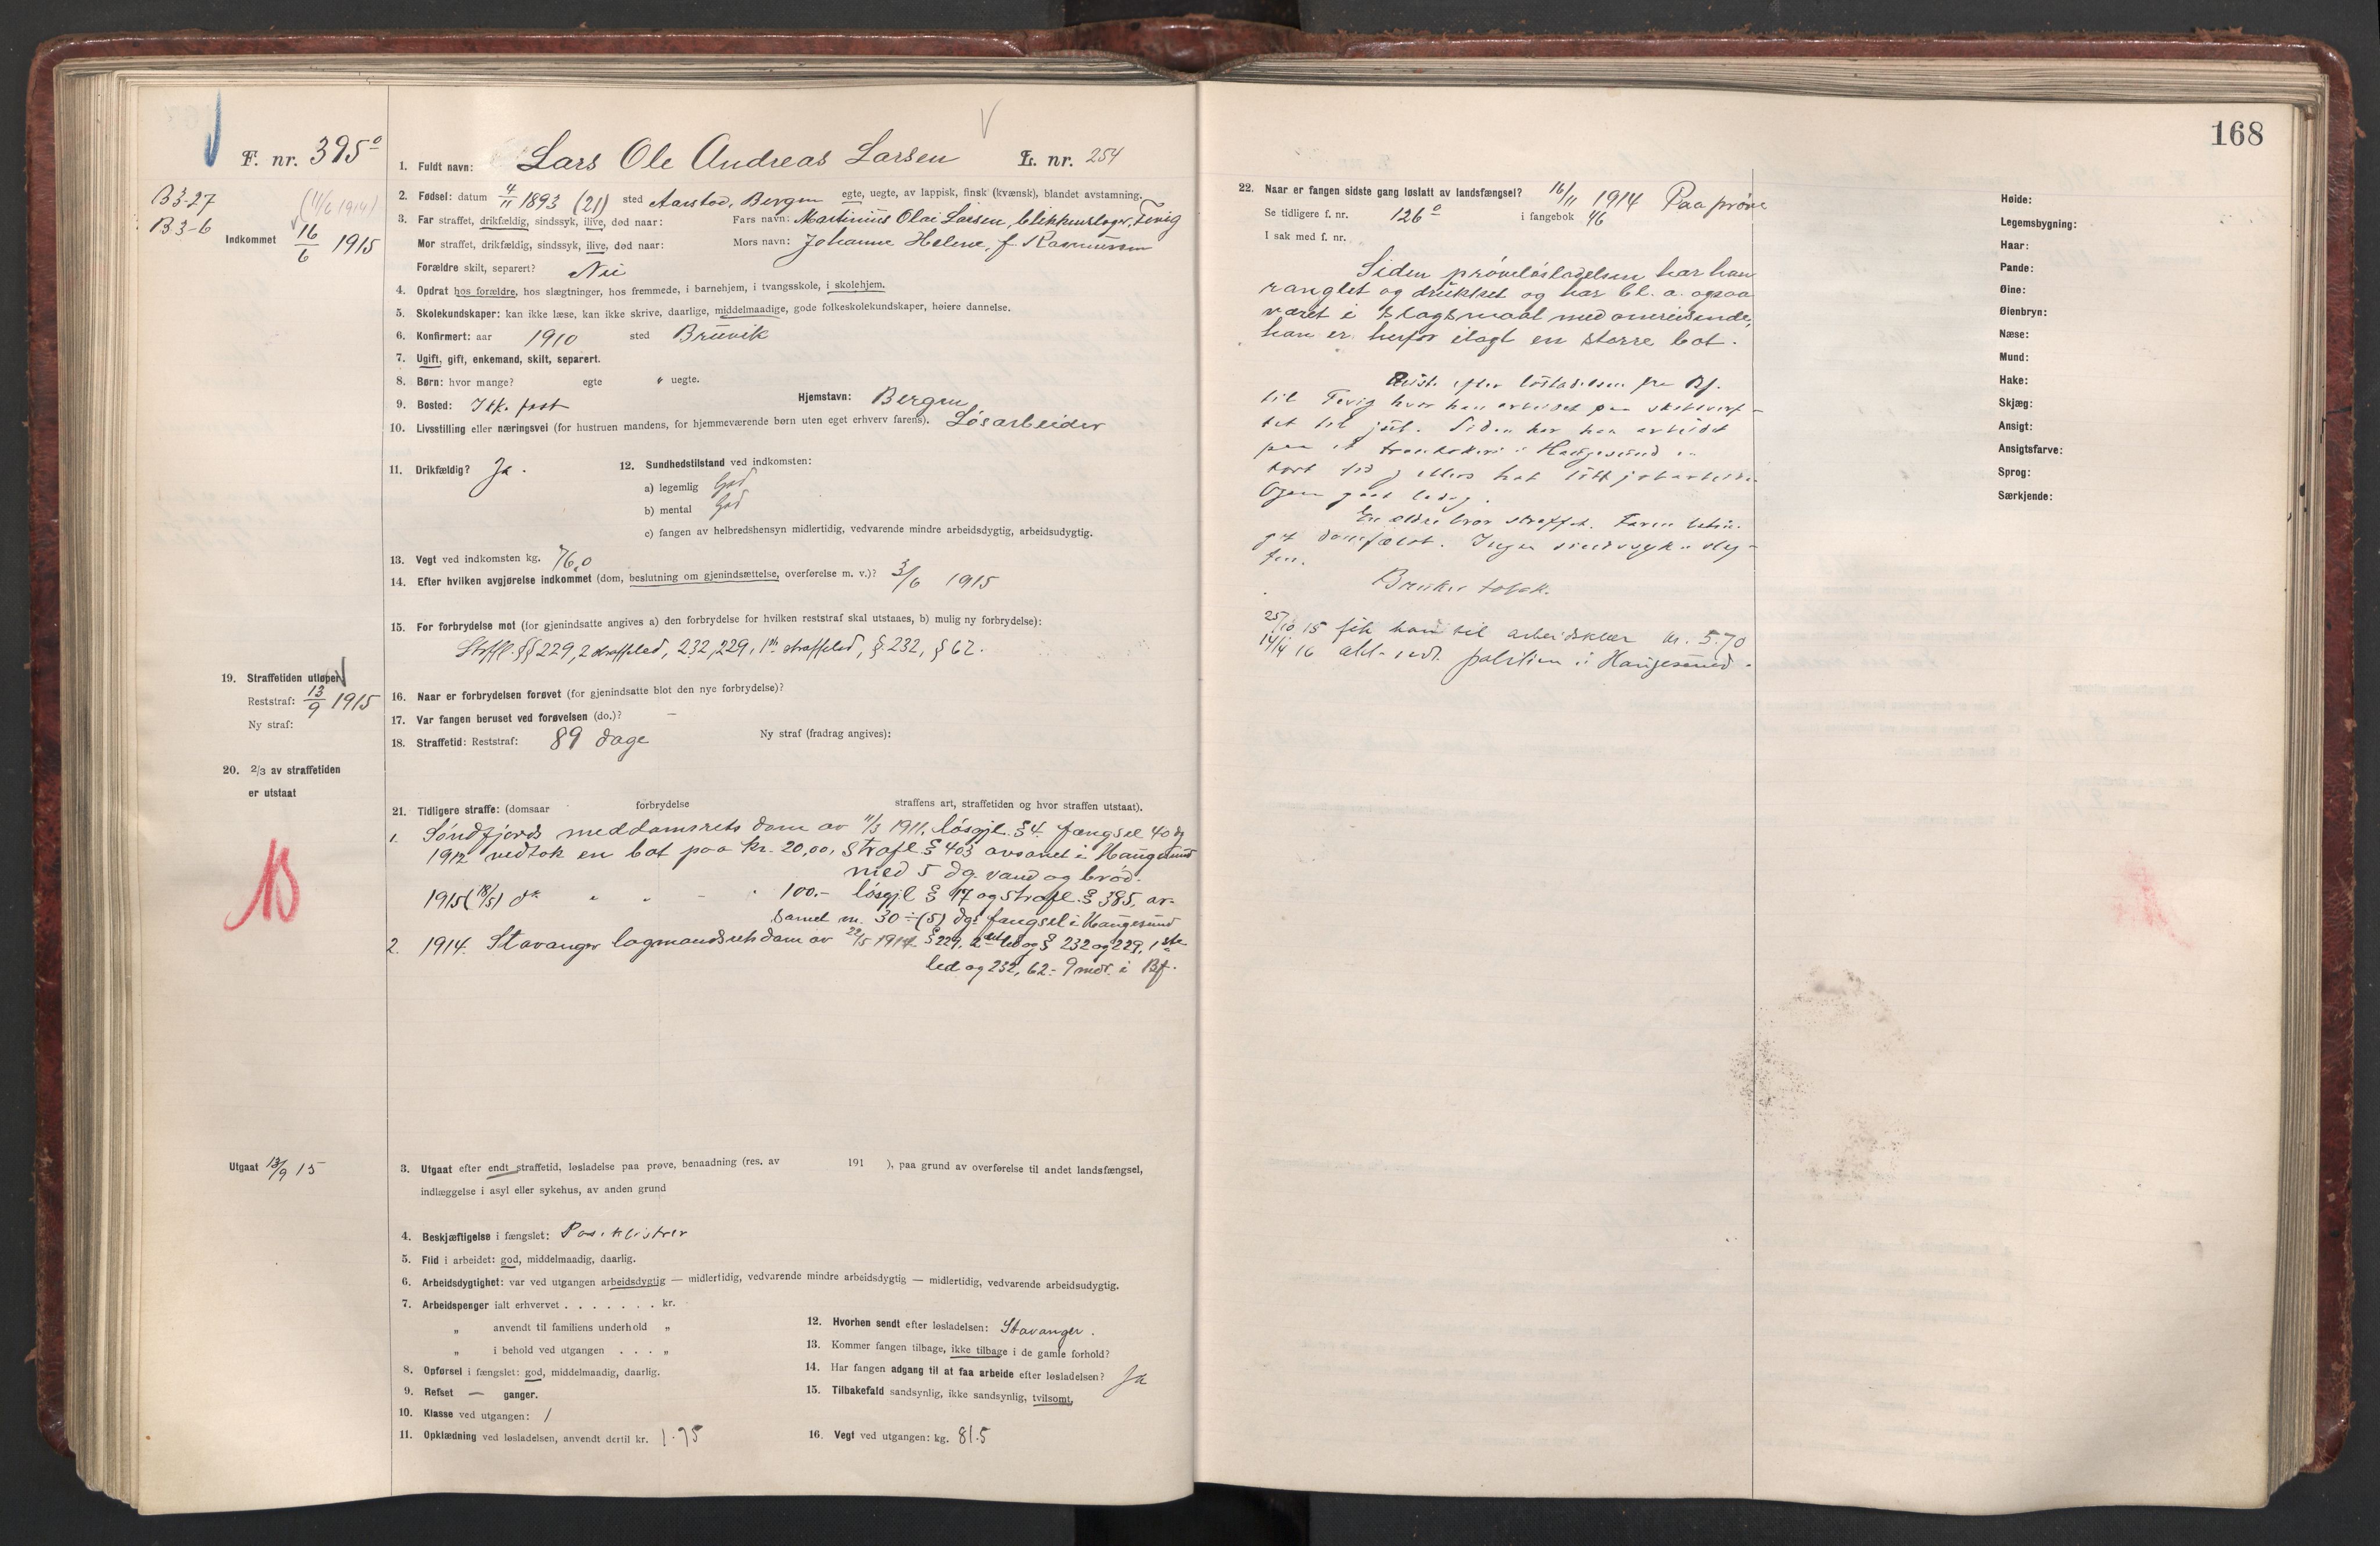 168
F. nr. 395°
B3-27
B3-6
(11/6 1914)
Indkommet 16/6 1915
1. Fuldt navn: Lars Ole Andreas Larsen L. nr. 254
2. Fødsel: datum 4/11 1893 (21) sted Aarstad, Bergen egte, uegte, av lappisk, finsk (kvænsk), blandet avstamning.
3. Far straffet, drikfældig, sindssyk, ilive, død naar: Fars navn: Martinius Olai Larsen, blikkenslager, Fevig
Mor straffet, drikfældig, sindssyk, ilive, død naar: Mors navn: Johanne Helene, f. Rasmussen
Forældre skilt, separert? Nei
4. Opdrat hos forældre, hos slægtninger, hos fremmede, i barnehjem, i tvangsskole, i skolehjem.
5. Skolekundskaper: kan ikke læse, kan ikke skrive, daarlige, middelmaadige, gode folkeskolekundskaper, høiere dannelse.
6. Konfirmert: aar 1910 sted Bruvik
7. Ugift, gift, enkemand, skilt, separert.
8. Børn: hvor mange? egte " uegte.
9. Bosted: Ikke fast Hjemstavn: Bergen
10. Livsstilling eller næringsvei (for hustruen mandens, for hjemmeværende børn uten eget erhverv farens). Løsarbeider
11. Drikfældig? Ja.
12. Sundhedstilstand ved indkomsten:
a) legemlig God
b) mental God
c) fangen av helbredshensyn midlertidig, vedvarende mindre arbeidsdygtig, arbeidsudygtig.
13. Vegt ved indkomsten kg. 76,0
14. Efter hvilken avgjørelse indkommet (dom, beslutning om gjenindsættelse, overførelse m. v.)? 3/6 1915
15. For forbrydelse mot (for gjenindsatte angives a) den forbrydelse for hvilken reststraf skal utstaaes, b) mulig ny forbrydelse):
Strfl. §§ 229, 2 straffeled, 232, 229, 1ste straffeled, § 232, § 62.
19. Straffetiden utløper
Reststraf: 13/9 1915
Ny straf:
16. Naar er forbrydelsen forøvet (for gjenindsatte blot den nye forbrydelse)?
17. Var fangen beruset ved forøvelsen (do.)? —
18. Straffetid: Reststraf: 89 dage Ny straf (fradrag angives):
20. 2/3 av straffetiden
er utstaat
21. Tidligere straffe: (domsaar forbrydelse straffens art, straffetiden og hvor straffen utstaat).
1. Søndfjords meddomsrets dom av 11/3 1911, løsgjl. § 4. fængsel 40 dg
1912 vedtok en bot paa kr. 20,00, Strafl. § 403 avsonet i Haugesund
med 5 dg. vand og brød.
1915 (18/5) do " " - " 100.- løsgjl § 17 og Strafl. § 385, av-
sonet m. 30 ÷ (5) dgs fængsel i Haugesund
2. 1914. Stavanger lagmandsrets dom av 22/5 1914 § 229, 2det led og § 232 og 229, 1ste
led og 232, 62 - 9 mdr. i Bf.
Utgaat 13/9 15
3. Utgaat efter endt straffetid, løsladelse paa prøve, benaadning (res. av 191 ), paa grund av overførelse til andet landsfængsel,
indlæggelse i asyl eller sykehus, av anden grund
4. Beskjæftigelse i fængslet: Poseklistrer
5. Flid i arbeidet: god, middelmaadig, daarlig.
6. Arbeidsdygtighet: var ved utgangen arbeidsdygtig — midlertidig, vedvarende mindre arbeidsdygtig — midlertidig, vedvarende arbeidsudygtig.
7. Arbeidspenger ialt erhvervet . . . . . . . kr.
" anvendt til familiens underhold "
" i behold ved utgangen . . . "
8. Opførsel i fængslet: god, middelmaadig, daarlig.
9. Refset — ganger.
10. Klasse ved utgangen: 1
11. Opklædning ved løsladelsen, anvendt dertil kr. 1.75
12. Hvorhen sendt efter løsladelsen: Stavanger.
13. Kommer fangen tilbage, ikke tilbage i de gamle forhold?
14. Har fangen adgang til at faa arbeide efter løsladelsen? Ja
15. Tilbakefald sandsynlig, ikke sandsynlig, tvilsomt.
16. Vegt ved utgangen: kg. 81.5
22. Naar er fangen sidste gang løslatt av landsfængsel? 16/11 1914 Paa prøve
Se tidligere f. nr. 126° i fangebok 46
I sak med f. nr.
Siden prøveløsladelsen har han
ranglet og drukket og har bl. a. ogsaa
været i slagsmaal med omreisende,
han er herfor ilagt en større bot.
Reiste efter løsladelsen fra Bf.
til Fevig hvor han arbeidet paa skibsverf-
tet til jul. Siden har han arbeidet
paa et i Haugesund en
kort tid, ellers hat litt
gaat ledig.
En ældre bror straffet. Faren betin-
get domfældt. Ingen sindssyke i slæg-
ten.
Bruker tobak.
25/10 15 fik han til arbeidsklær kr. 5.70
14/4 16 politiet i Haugesund.
Høide:
Legemsbygning:
Haar:
Pande:
Øine:
Øienbryn:
Næse:
Mund:
Hake:
Skjæg:
Ansigt:
Ansigtsfarve:
Sprog:
Særkjende: